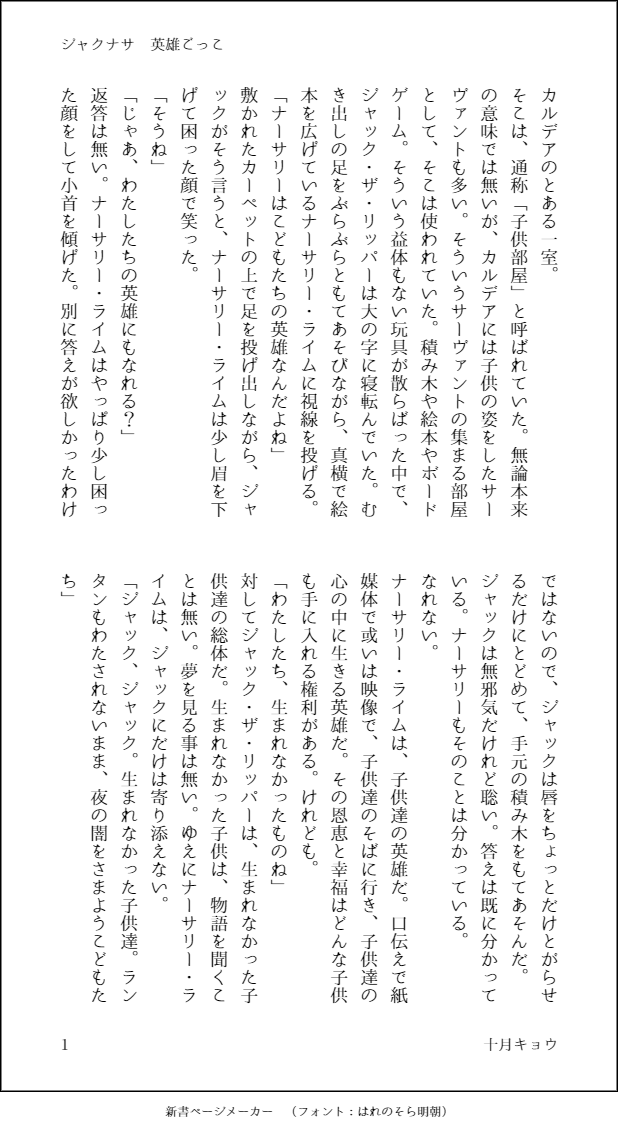 ジャクナサ　英雄ごっこ
カルデアのとある一室。
そこは、通称「子供部屋」と呼ばれていた。無論本来
の意味では無いが、カルデアには子供の姿をしたサー
ヴァントも多い。そういうサーヴァントの集まる部屋
として、そこは使われていた。積み木や絵本やボード
ゲーム。そういう益体もない玩具が散らばった中で、
ジャック・ザ・リッパーは大の字に寝転んでいた。む
き出しの足をぶらぶらともてあそびながら、真横で絵
本を広げているナーサリー・ライムに視線を投げる。
「ナーサリーはこどもたちの英雄なんだよね」
敷かれたカーペットの上で足を投げ出しながら、ジャ
ックがそう言うと、ナーサリー・ライムは少し眉を下
げて困った顔で笑った。
「そうね」
「じゃあ、わたしたちの英雄にもなれる？」
返答は無い。ナーサリー・ライムはやっぱり少し困っ
た顔をして小首を傾げた。別に答えが欲しかったわけ
ではないので、ジャックは唇をちょっとだけとがらせ
るだけにとどめて、手元の積み木をもてあそんだ。
ジャックは無邪気だけれど聡い。答えは既に分かって
いる。ナーサリーもそのことは分かっている。
なれない。
ナーサリー・ライムは、子供達の英雄だ。口伝えで紙
媒体で或いは映像で、子供達のそばに行き、子供達の
心の中に生きる英雄だ。その恩恵と幸福はどんな子供
も手に入れる権利がある。けれども。
「わたしたち、生まれなかったものね」
対してジャック・ザ・リッパーは、生まれなかった子
供達の総体だ。生まれなかった子供は、物語を聞くこ
とは無い。夢を見る事は無い。ゆえにナーサリー・ラ
イムは、ジャックにだけは寄り添えない。
「ジャック、ジャック。生まれなかった子供達。ラン
タンもわたされないまま、夜の闇をさまようこどもた
ち」
1
十月キョウ
新書ページメーカー　（フォント：はれのそら明朝）